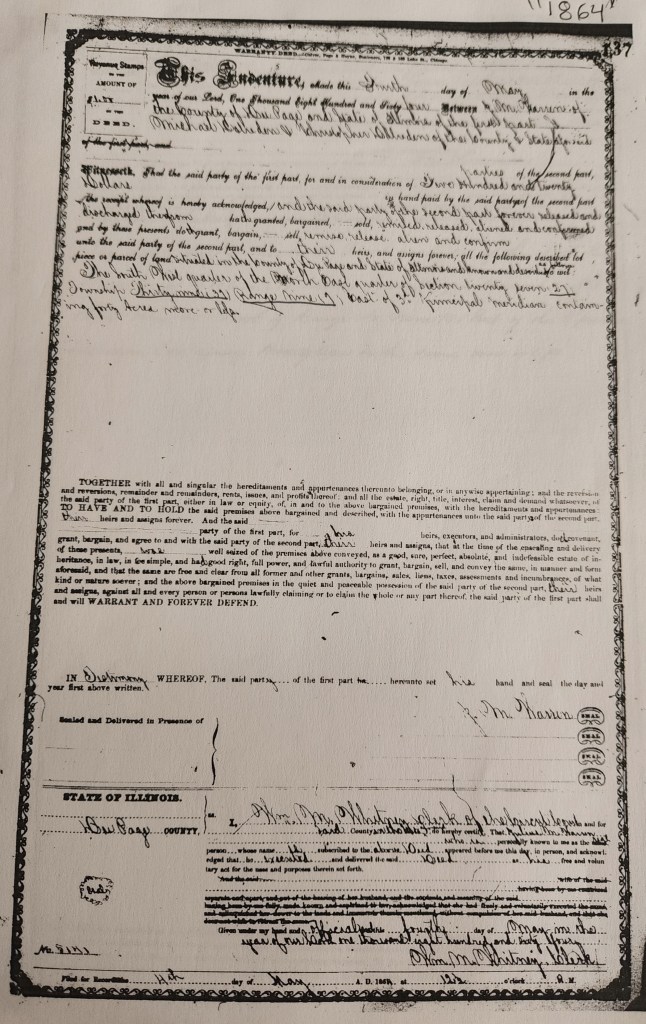 "1864"
137
WARRANTY DEED.
Revenue Stamps
TO THE
AMOUNT OF
DEED.
This Indenture, Made this Fourth day of May in the
year of our Lord, One Thousand Eight Hundred and Sixty four Between J. M. Warren of
the County of Du Page and State of Illinois of the first part &
Michael & Christopher of the County & State aforesaid
of the first part and
Witnesseth, That the said party of the first part, for and in consideration of Two Hundred and twenty parties of the second part,
Dollars in hand paid by the said party of the second part
the receipt whereof is hereby acknowledged, and the said party of the second part forever released and
discharged therefrom hath granted, bargained, sold, remised, released, aliened and confirmed
and by these presents doth grant, bargain, sell, remise release alien and confirm
unto the said party of the second part, and to their heirs, and assigns forever, all the following described lot
piece or parcel of land situated in the County of Du Page and State of Illinois and known and described as follows to wit
The South West quarter of the North East quarter of Section twenty seven 27
Township Range Nine East of 3d principal meridian contain-
ing forty Acres more or less
TOGETHER with all and singular the hereditaments and appurtenances thereunto belonging, or in anywise appertaining; and the reversion
and reversions, remainder and remainders, rents, issues, and profits thereof; and all the estate, right, title, interest, claim and demand whatsoever, of
the said party of the first part, either in law or equity, of, in and to the above bargained premises, with the hereditaments and appurtenances:
TO HAVE AND TO HOLD the said premises above bargained and described, with the appurtenances unto the said party of the second part,
their heirs and assigns forever. And the said
party of the first part, for his heirs, executors, and administrators, do covenant,
grant, bargain, and agree to and with the said party of the second part, their heirs and assigns, that at the time of the ensealing and delivery
of these presents, was well seized of the premises above conveyed, as a good, sure, perfect, absolute, and indefeasible estate of in-
heritance, in law, in fee simple, and had good right, full power, and lawful authority to grant, bargain, sell, and convey the same, in manner and form
aforesaid, and that the same are free and clear from all former and other grants, bargains, sales, liens, taxes, assessments and incumbrances, of what
kind or nature soever; and the above bargained premises in the quiet and peaceable possession of the said party of the second part, their heirs
and assigns, against all and every person or persons lawfully claiming or to claim the whole or any part thereof, the said party of the first part shall
and will WARRANT AND FOREVER DEFEND.
IN Testimony WHEREOF, The said party of the first part ha hereunto set his hand and seal the day and
year first above written.
J. M. Warren SEAL
Sealed and Delivered in Presence of
SEAL
SEAL
SEAL
STATE OF ILLINOIS.
Du Page COUNTY, ss. I, Wm. M. Whitney clerk of the Circuit Court in and for
said County do hereby certify That M. Warren
who is personally known to me as the
person whose name is subscribed to the above Deed appeared before me this day, in person, and acknowl-
edged that he executed and delivered the said Deed as his free and volun-
tary act for the uses and purposes therein set forth.
Given under my hand and official seal this fourth day of May in the
year of our Lord one thousand eight hundred and sixty four
Wm M. Whitney Clerk
Filed for Record this 4th day of May A. D. 1864 at o'clock P. M.